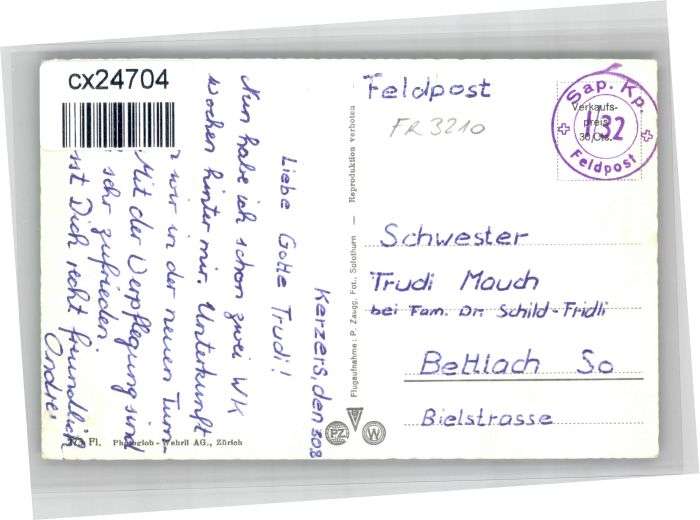 cx24704
Feldpost
FR 3210
Sap. Kp.
Verkaufs-
preis
30 Cts.
I/32
Feldpost
Kerzers, den 30.8
Liebe Gotte Trudi!
Nun habe ich schon zwei WK
wochen hinter mir. Unterkunft
wir in der neuen Turn-
Mit der Verpflegung sind
sehr zufrieden
sst Dich recht freundlich
André
Schwester
Trudi Mauch
bei Fam. Dr. Schild-Fridli
Bettlach So
Bielstrasse
Flugaufnahme: P. Zaugg, Fot., Solothurn — Reproduktion verboten
Fl. Photoglob-Wehrli AG., Zürich
PZ
W